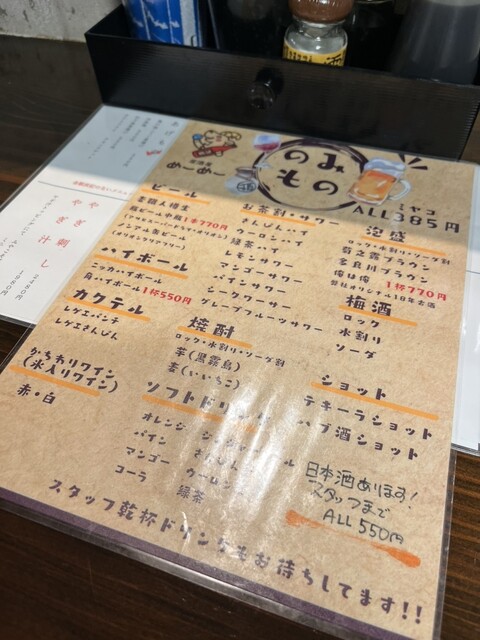 のみもの
ALL385円
めーめー
ビール
麦職人樽生
瓶ビール中瓶1本770円
ノンアル缶ビール
(オリオンクリアフリー)
ハイボール
ニッカハイボール
角ハイボール1杯550円
カクテル
レゲエパンチ
レゲエさんぴん
かちわりワイン
(氷入りワイン)
赤・白
お茶割・サワー
さんぴんハイ
ウーロンハイ
緑茶ハイ
レモンサワー
マンゴーサワー
パインサワー
シークワーサー
グレープフルーツサワー
焼酎
ロック・水割り・ソーダ割
芋(黒霧島)
麦(いいちこ)
ソフトドリンク
オレンジ
パイン
マンゴー
コーラ
さんぴん
ウーロン
緑茶
泡盛
ロック・水割り・ソーダ割
菊之露ブラウン
多良川ブラウン
1杯770円
弊社オリジナル10年古酒
梅酒
ロック
水割り
ソーダ
ショット
テキーラショット
ハブ酒ショット
日本酒あります!
スタッフまで
ALL 550円
スタッフ乾杯ドリンクもお待ちしてます!!
やぎ刺し
やぎ汁